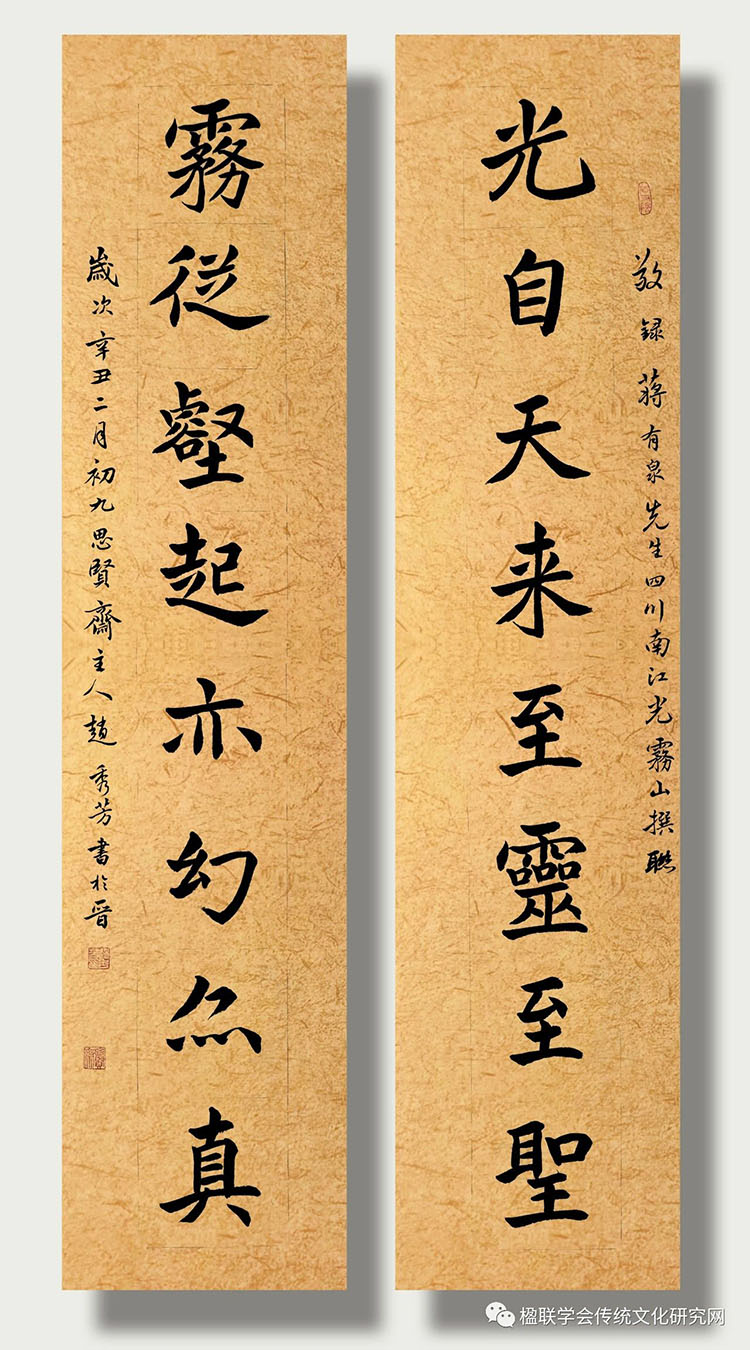 敬録蔣有泉先生四川南江光霧山撰聯
光自天来至靈至聖
霧従壑起亦幻亦真
歲次辛丑二月初九思賢齋主人趙秀芳書於晉
楹联学会传统文化研究网